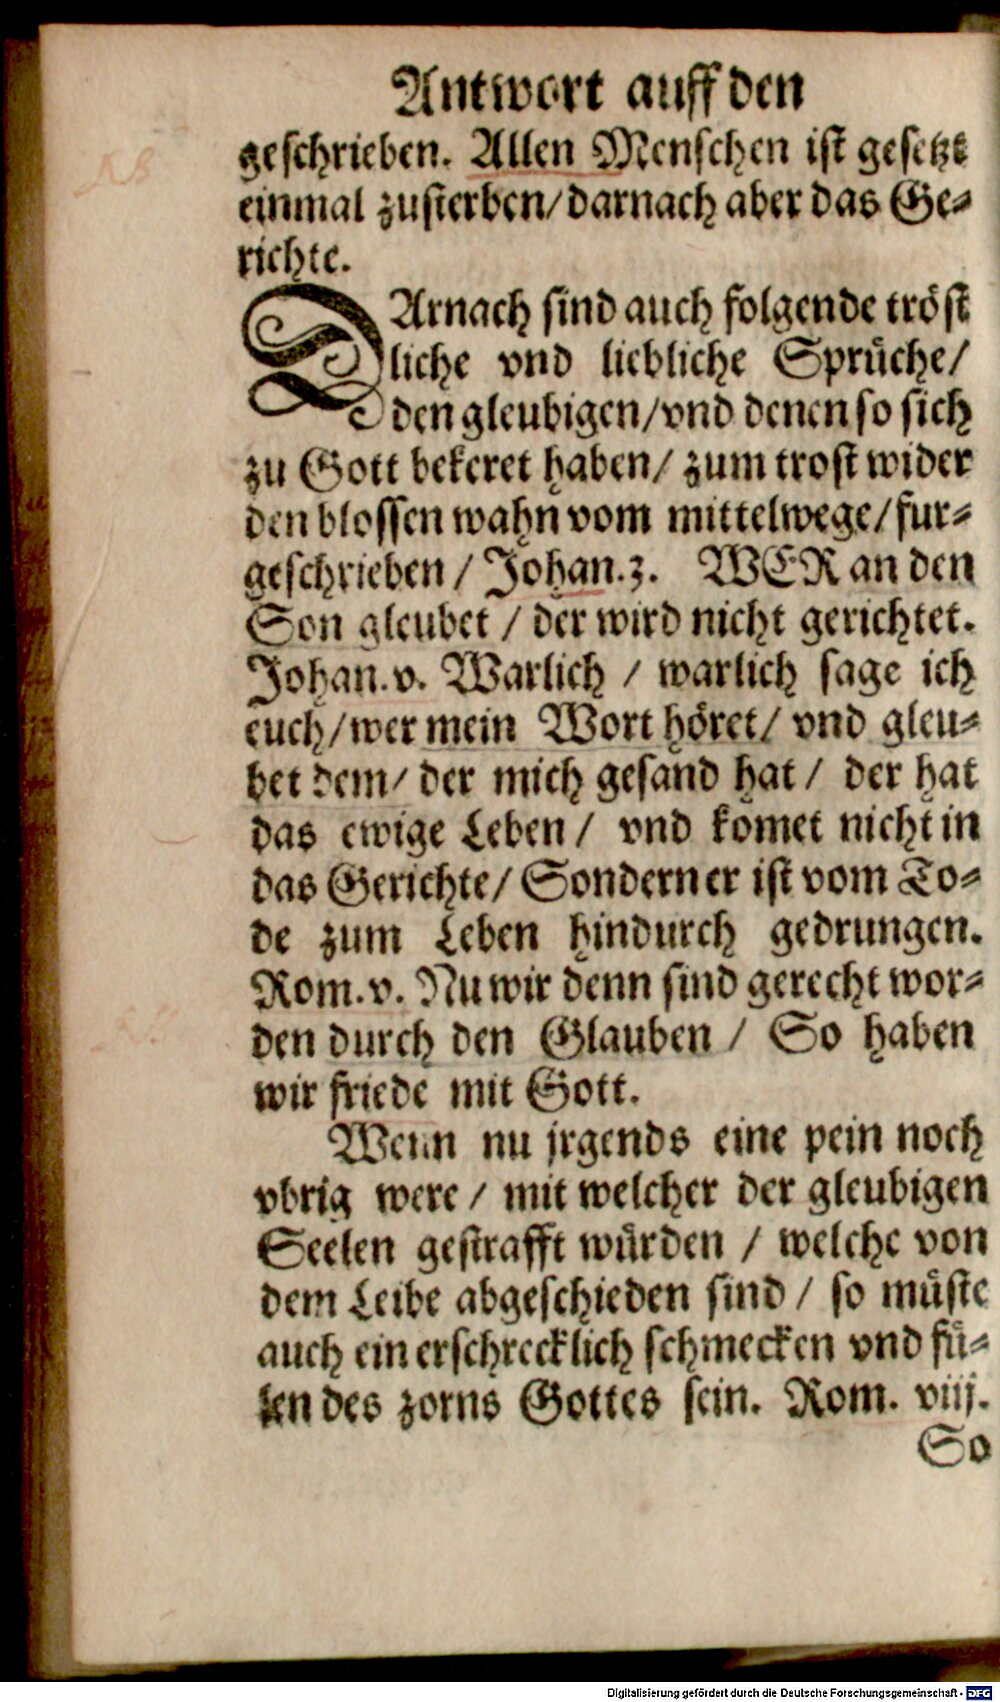 Antwort auff den
geschrieben. Allen Menschen ist gesetzt
einmal zusterben/ darnach aber das Ge-
richte.
DArnach sind auch folgende tröst
liche vnd liebliche Sprüche/
den gleubigen/ vnd denen so sich
zu Gott bekeret haben/ zum trost wider
den blossen wahn vom mittelwege/ fur-
geschrieben/ Johan. 3. WER an den
Son gleubet/ der wird nicht gerichtet.
Johan. v. Warlich/ warlich sage ich
euch/ wer mein Wort höret/ vnd gleu-
bet dem/ der mich gesand hat/ der hat
das ewige Leben/ vnd komet nicht in
das Gerichte/ Sondern er ist vom To-
de zum Leben hindurch gedrungen.
Rom. v. Nu wir denn sind gerecht wor-
den durch den Glauben/ So haben
wir friede mit Gott.
Wenn nu jrgends eine pein noch
vbrig were/ mit welcher der gleubigen
Seelen gestrafft würden/ welche von
dem Leibe abgeschieden sind/ so müste
auch ein erschrecklich schmecken vnd fü-
len des zorns Gottes sein. Rom. viij.
So
Digitalisierung gefördert durch die Deutsche Forschungsgemeinschaft - DFG